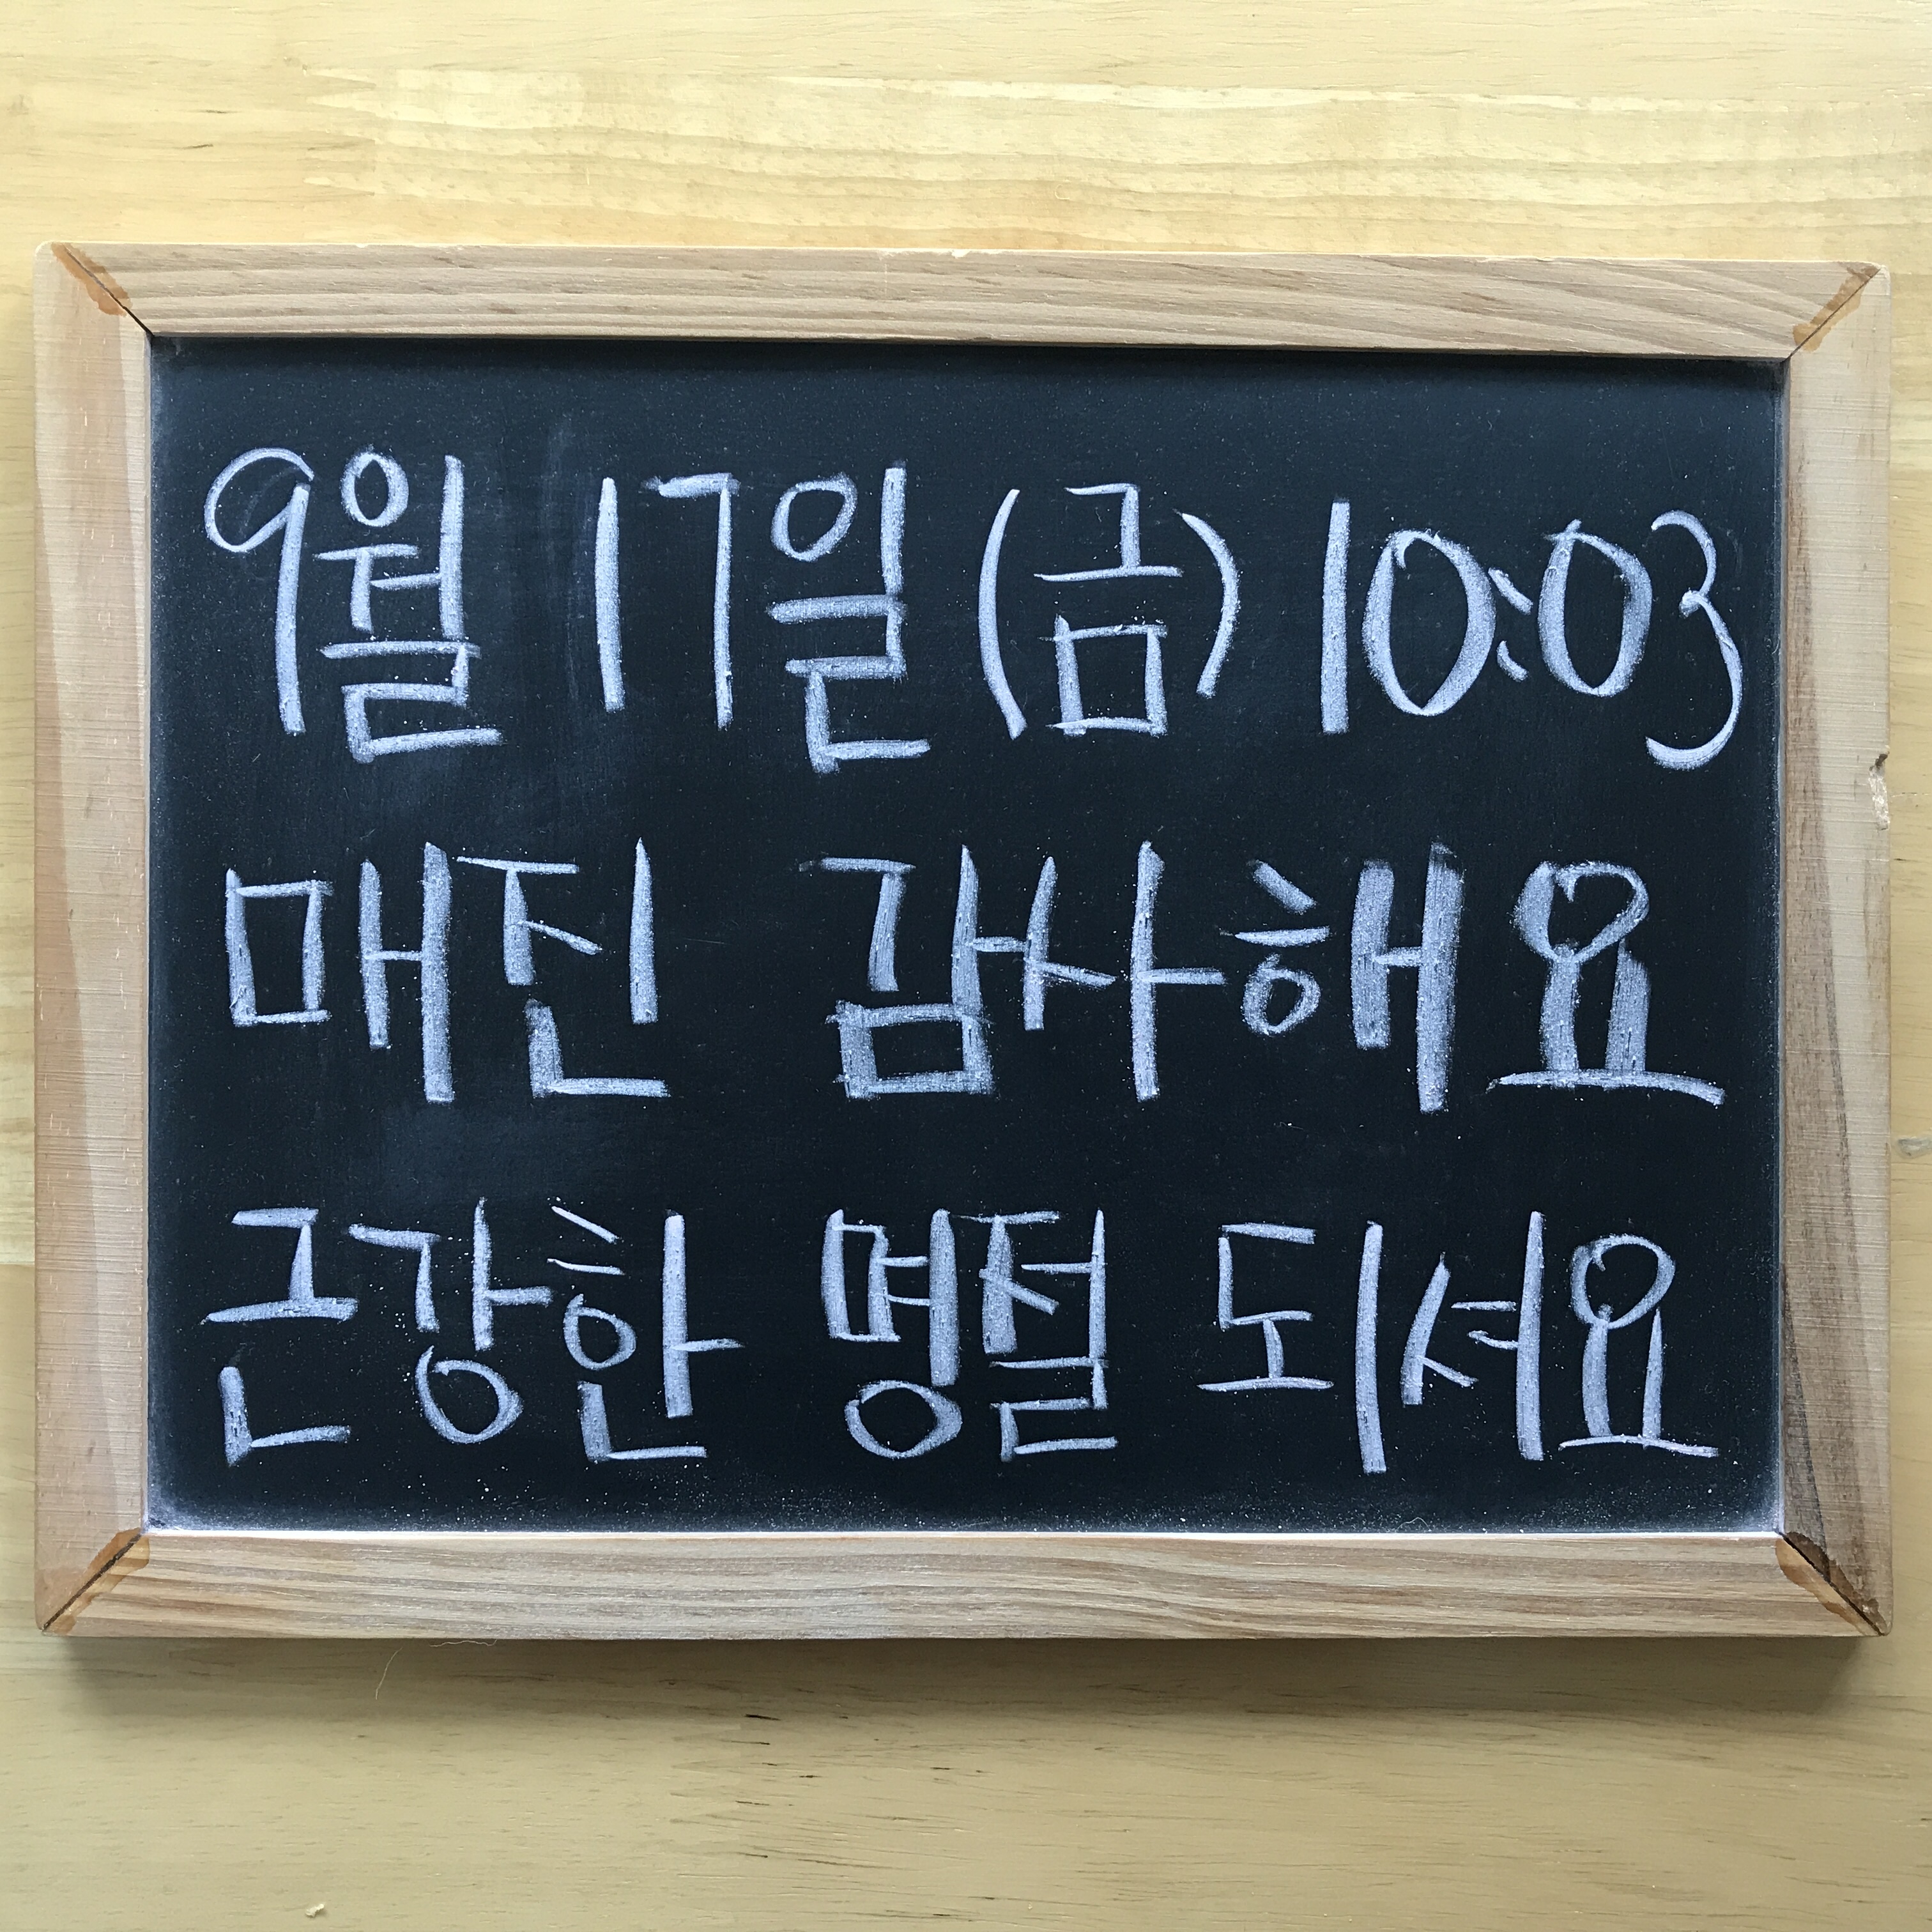 9월 17일 (금) 10:03
매진 감사해요
근강한 명절 되셔요